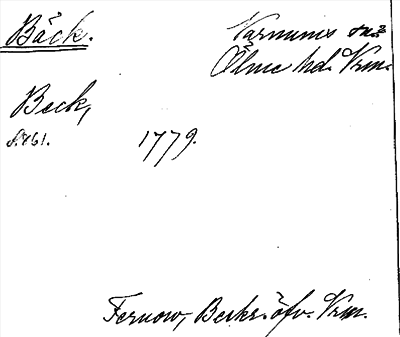 Bäck. Varnums sn:
Ölme hd. Vrm.
Beck,
s. 761. 1779.
Fernow, Beskr. öfv. Vrm.